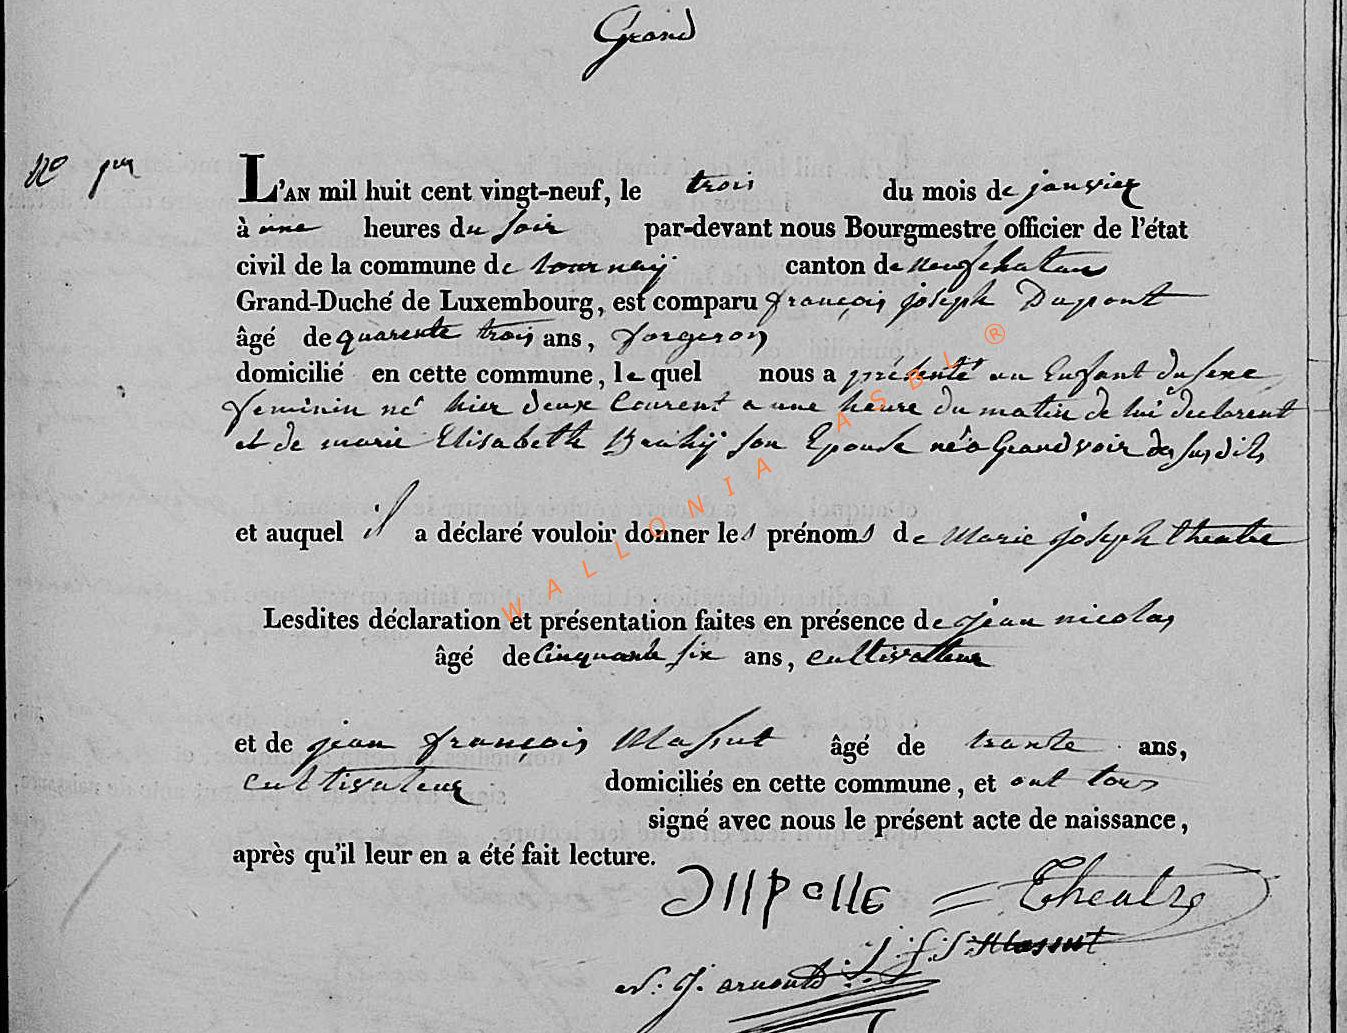 Grand
No 1er
L'AN mil huit cent vingt-neuf, le trois du mois de janvier
à une heures du soir par-devant nous Bourgmestre officier de l'état
civil de la commune de tournay canton de neufchateau
Grand-Duché de Luxembourg, est comparu françois joseph Dupont
âgé de quarente trois ans, forgeron
domicilié en cette commune, le quel nous a présenté un Enfant du sexe
feminin né hier deux Courent a une heure du matin de lui declarent
et de marie Elisabeth son Epouse né a Grandvoir des susdits
et auquel il a déclaré vouloir donner les prénoms de Marie joseph theatre
Lesdites déclaration et présentation faites en présence de jean nicolas
âgé de Cinquante six ans, cultivatteur
et de jean françois Massut âgé de trante ans,
cultivateur domiciliés en cette commune, et ont tous
signé avec nous le présent acte de naissance,
après qu'il leur en a été fait lecture.
Theatre
J. f. S. Massut
N. J. arnould
WALLONIA ASBL ®